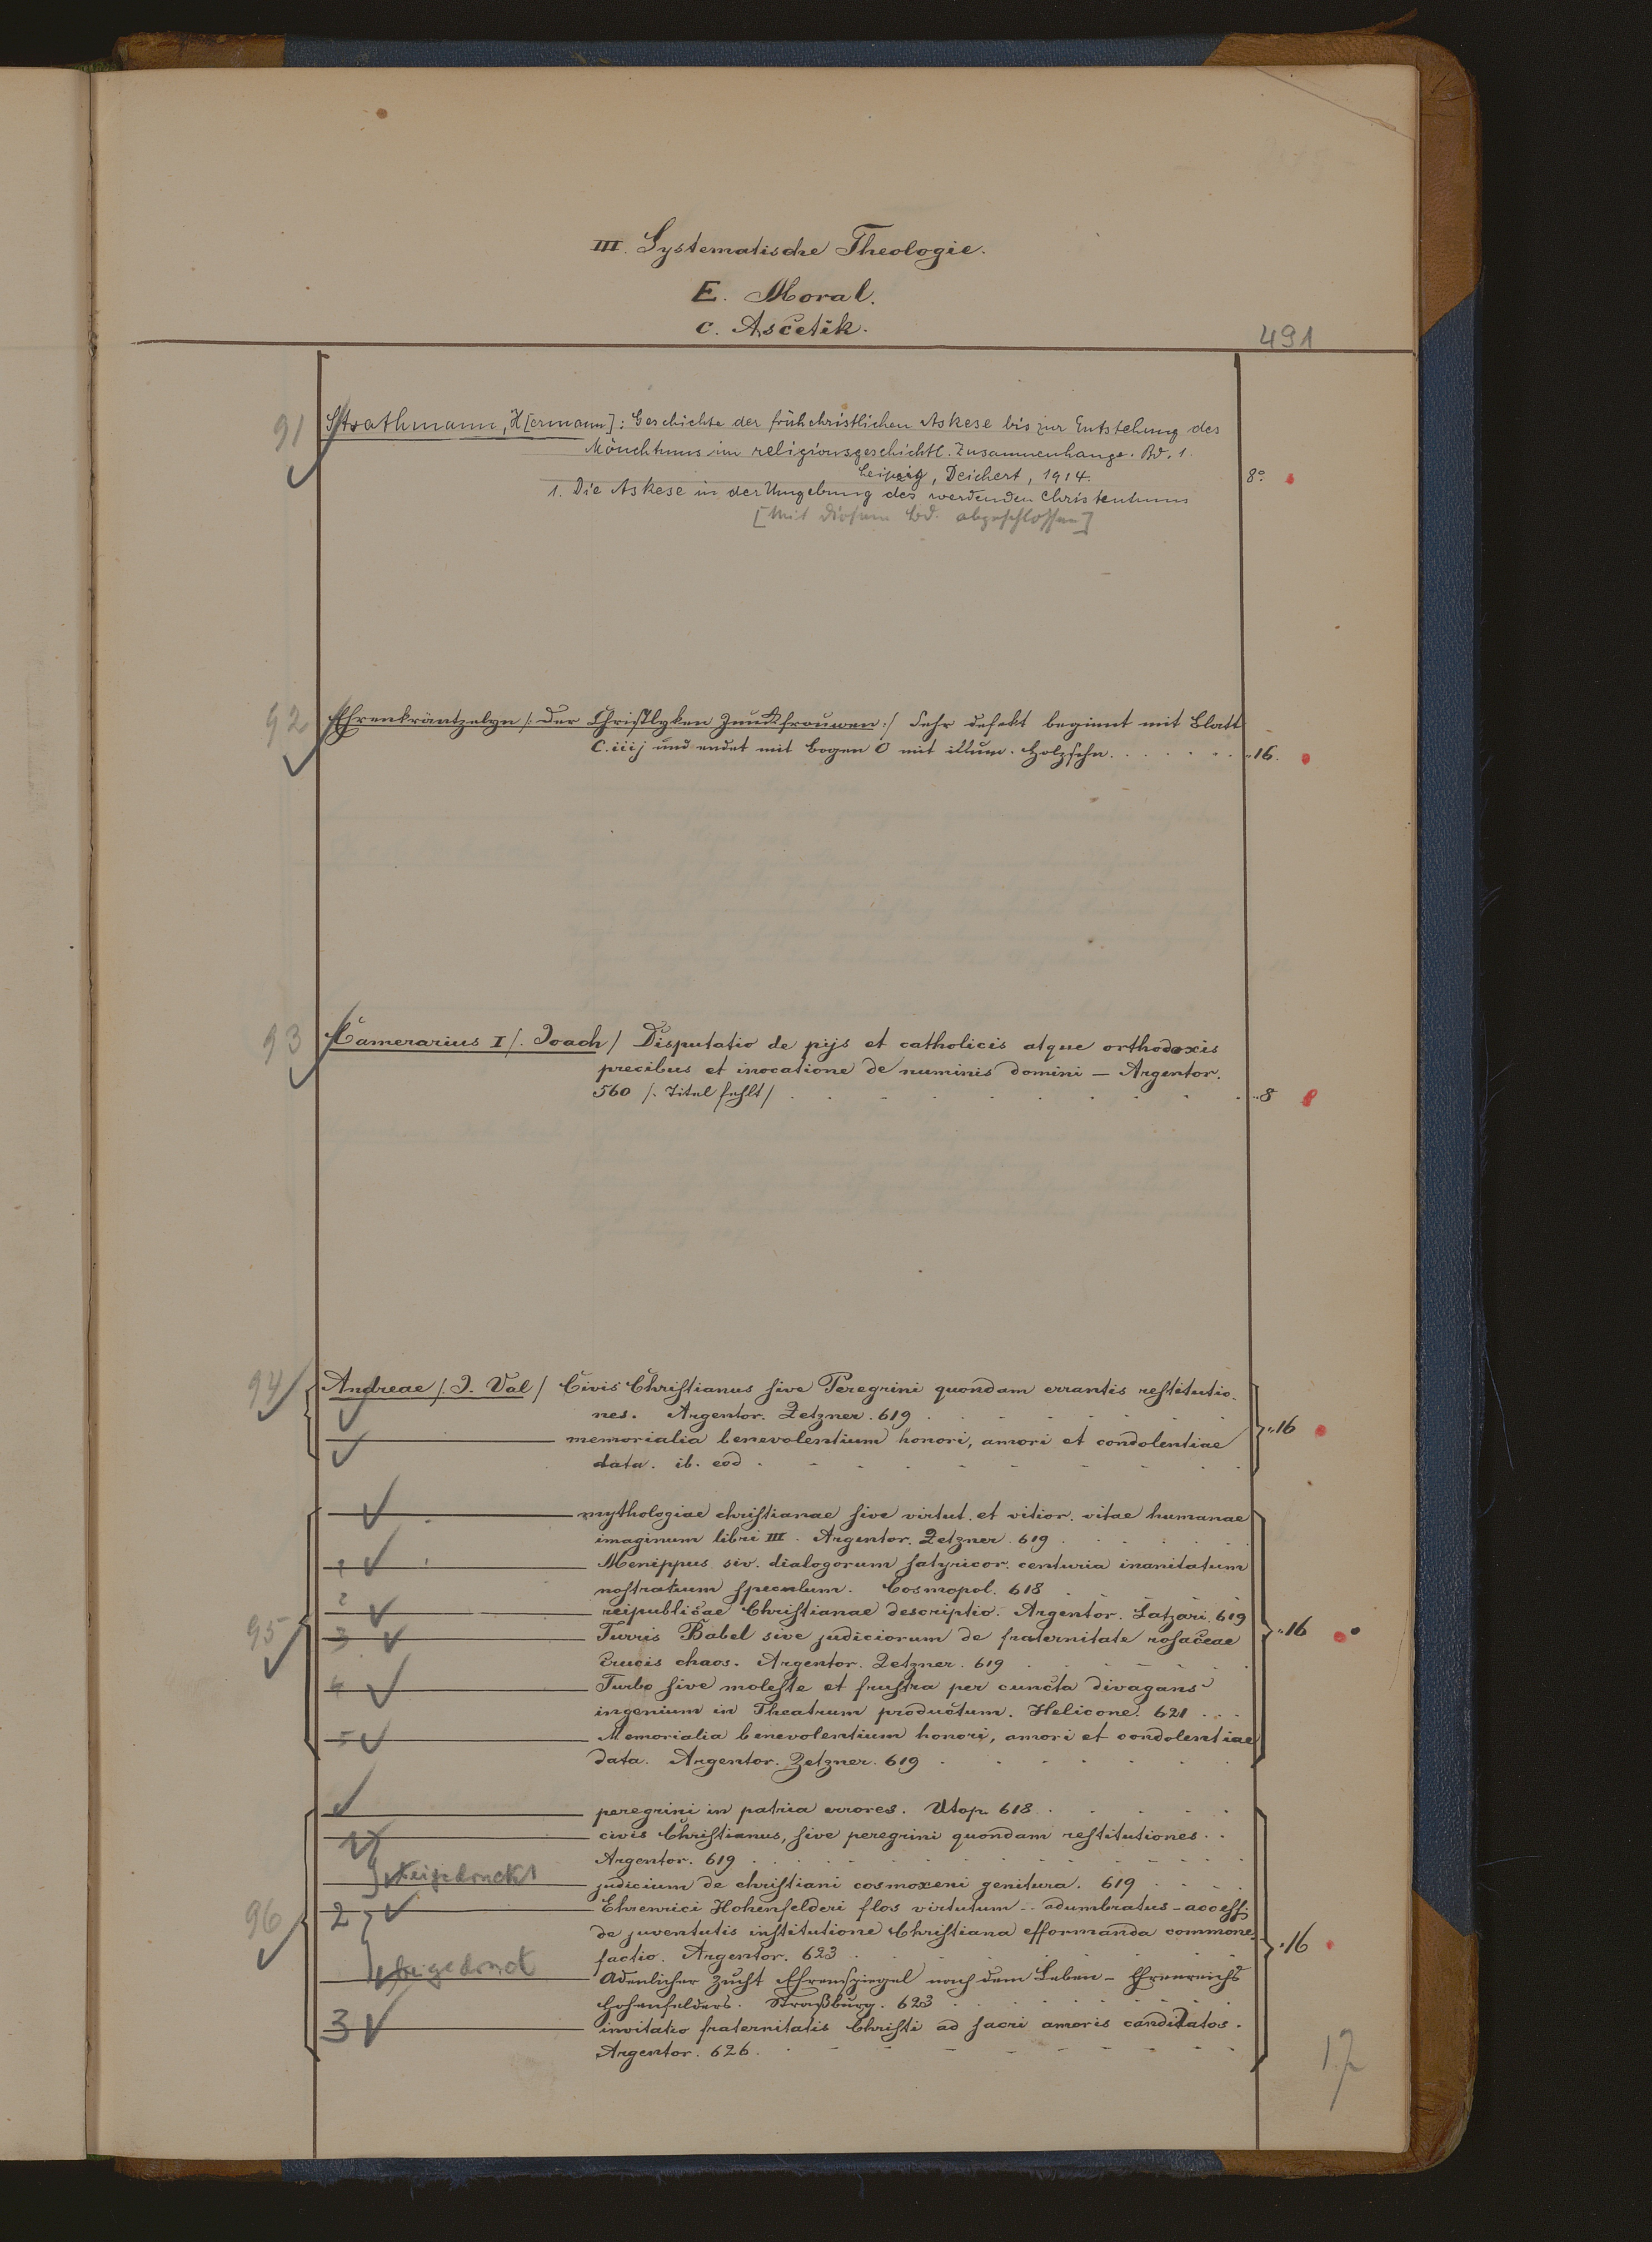 III. Systematische Theologie.
E. Moral.
c. Ascetik.
491
91 Strathmann, H[ermann]: Geschichte der frühchristlichen Askese bis zur Entstehung des
Mönchtums im religionsgeschichtl. Zusammenhange. Bd. 1.
Leipzig, Deichert, 1914. 8°
1. Die Askese in der Umgebung des werdenden Christentums
[Mit diesem Bd. abgeschlossen]
92 Ehrenkräntzelyn /: Der Christlyken Junckfrouwen :/ Sehr defekt beginnt mit Blatt
C. iiij und endet mit Bogen O mit illum. Holzschn. 16.
93 Camerarius I /. Joach / Disputatio de pijs et catholicis atque orthodoxis
precibus et inocatione de numinis domini — Argentor.
560 /. Titel fehlt / 8
94 Andreae /. J. Val / Civis Christianus sive Peregrini quondam errantis restitutio-
nes. Argentor. Zetzner. 619
memorialia benevolentium honori, amori et condolentiae 16
data. ib. eod
mythologiae christianae sive virtut. et vitior. vitae humanae
imaginum libri III. Argentor. Zetzner. 619
1 Menippus siv. dialogorum satyricor. centuria inanitatum
nostratium speculum. Cosmopol. 618
2 reipublicae Christianae descriptio. Argentor. 619
95 3 Turris Babel sive judiciorum de fraternitate rosaceae 16
Crucis chaos. Argentor. Zetzner. 619
4 Turbo sive moleste et frustra per cuncta divagans
ingenium in Theatrum productum. Helicone. 621
5 Memorialia benevolentium honori, amori et condolentiae
data. Argentor. Zetzner. 619
peregrini in patria errores. Utop. 618
1 civis Christianus, sive peregrini quondam restitutiones.
Argentor. 619
beigedruckt judicium de christiani cosmoxeni genitura. 619
2 Ehrenrici Hohenfelderi flos virtutum .. adumbratus - access.
96 de juventutis institutione Christiana efformanda commone-
factio. Argentor. 623 16
beigedruckt Adenlicher Zucht Ehrenspiegel nach dem Leben - Ehrenreichs
Hohenfelders. Straßburg. 623
3 invitatio fraternitatis Christi ad sacri amoris candidatos.
Argentor. 626.